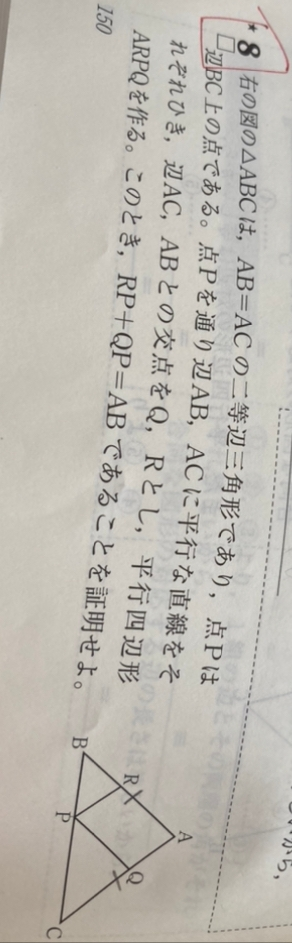 *8 右の図の△ABCは，AB=ACの二等辺三角形であり，点Pは
□ 辺BC上の点である。点Pを通り辺AB，ACに平行な直線をそ
れぞれひき，辺AC，ABとの交点をQ，Rとし，平行四辺形
ARPQを作る。このとき，RP+QP=ABであることを証明せよ。
A
R
Q
B
P
C
150
から，